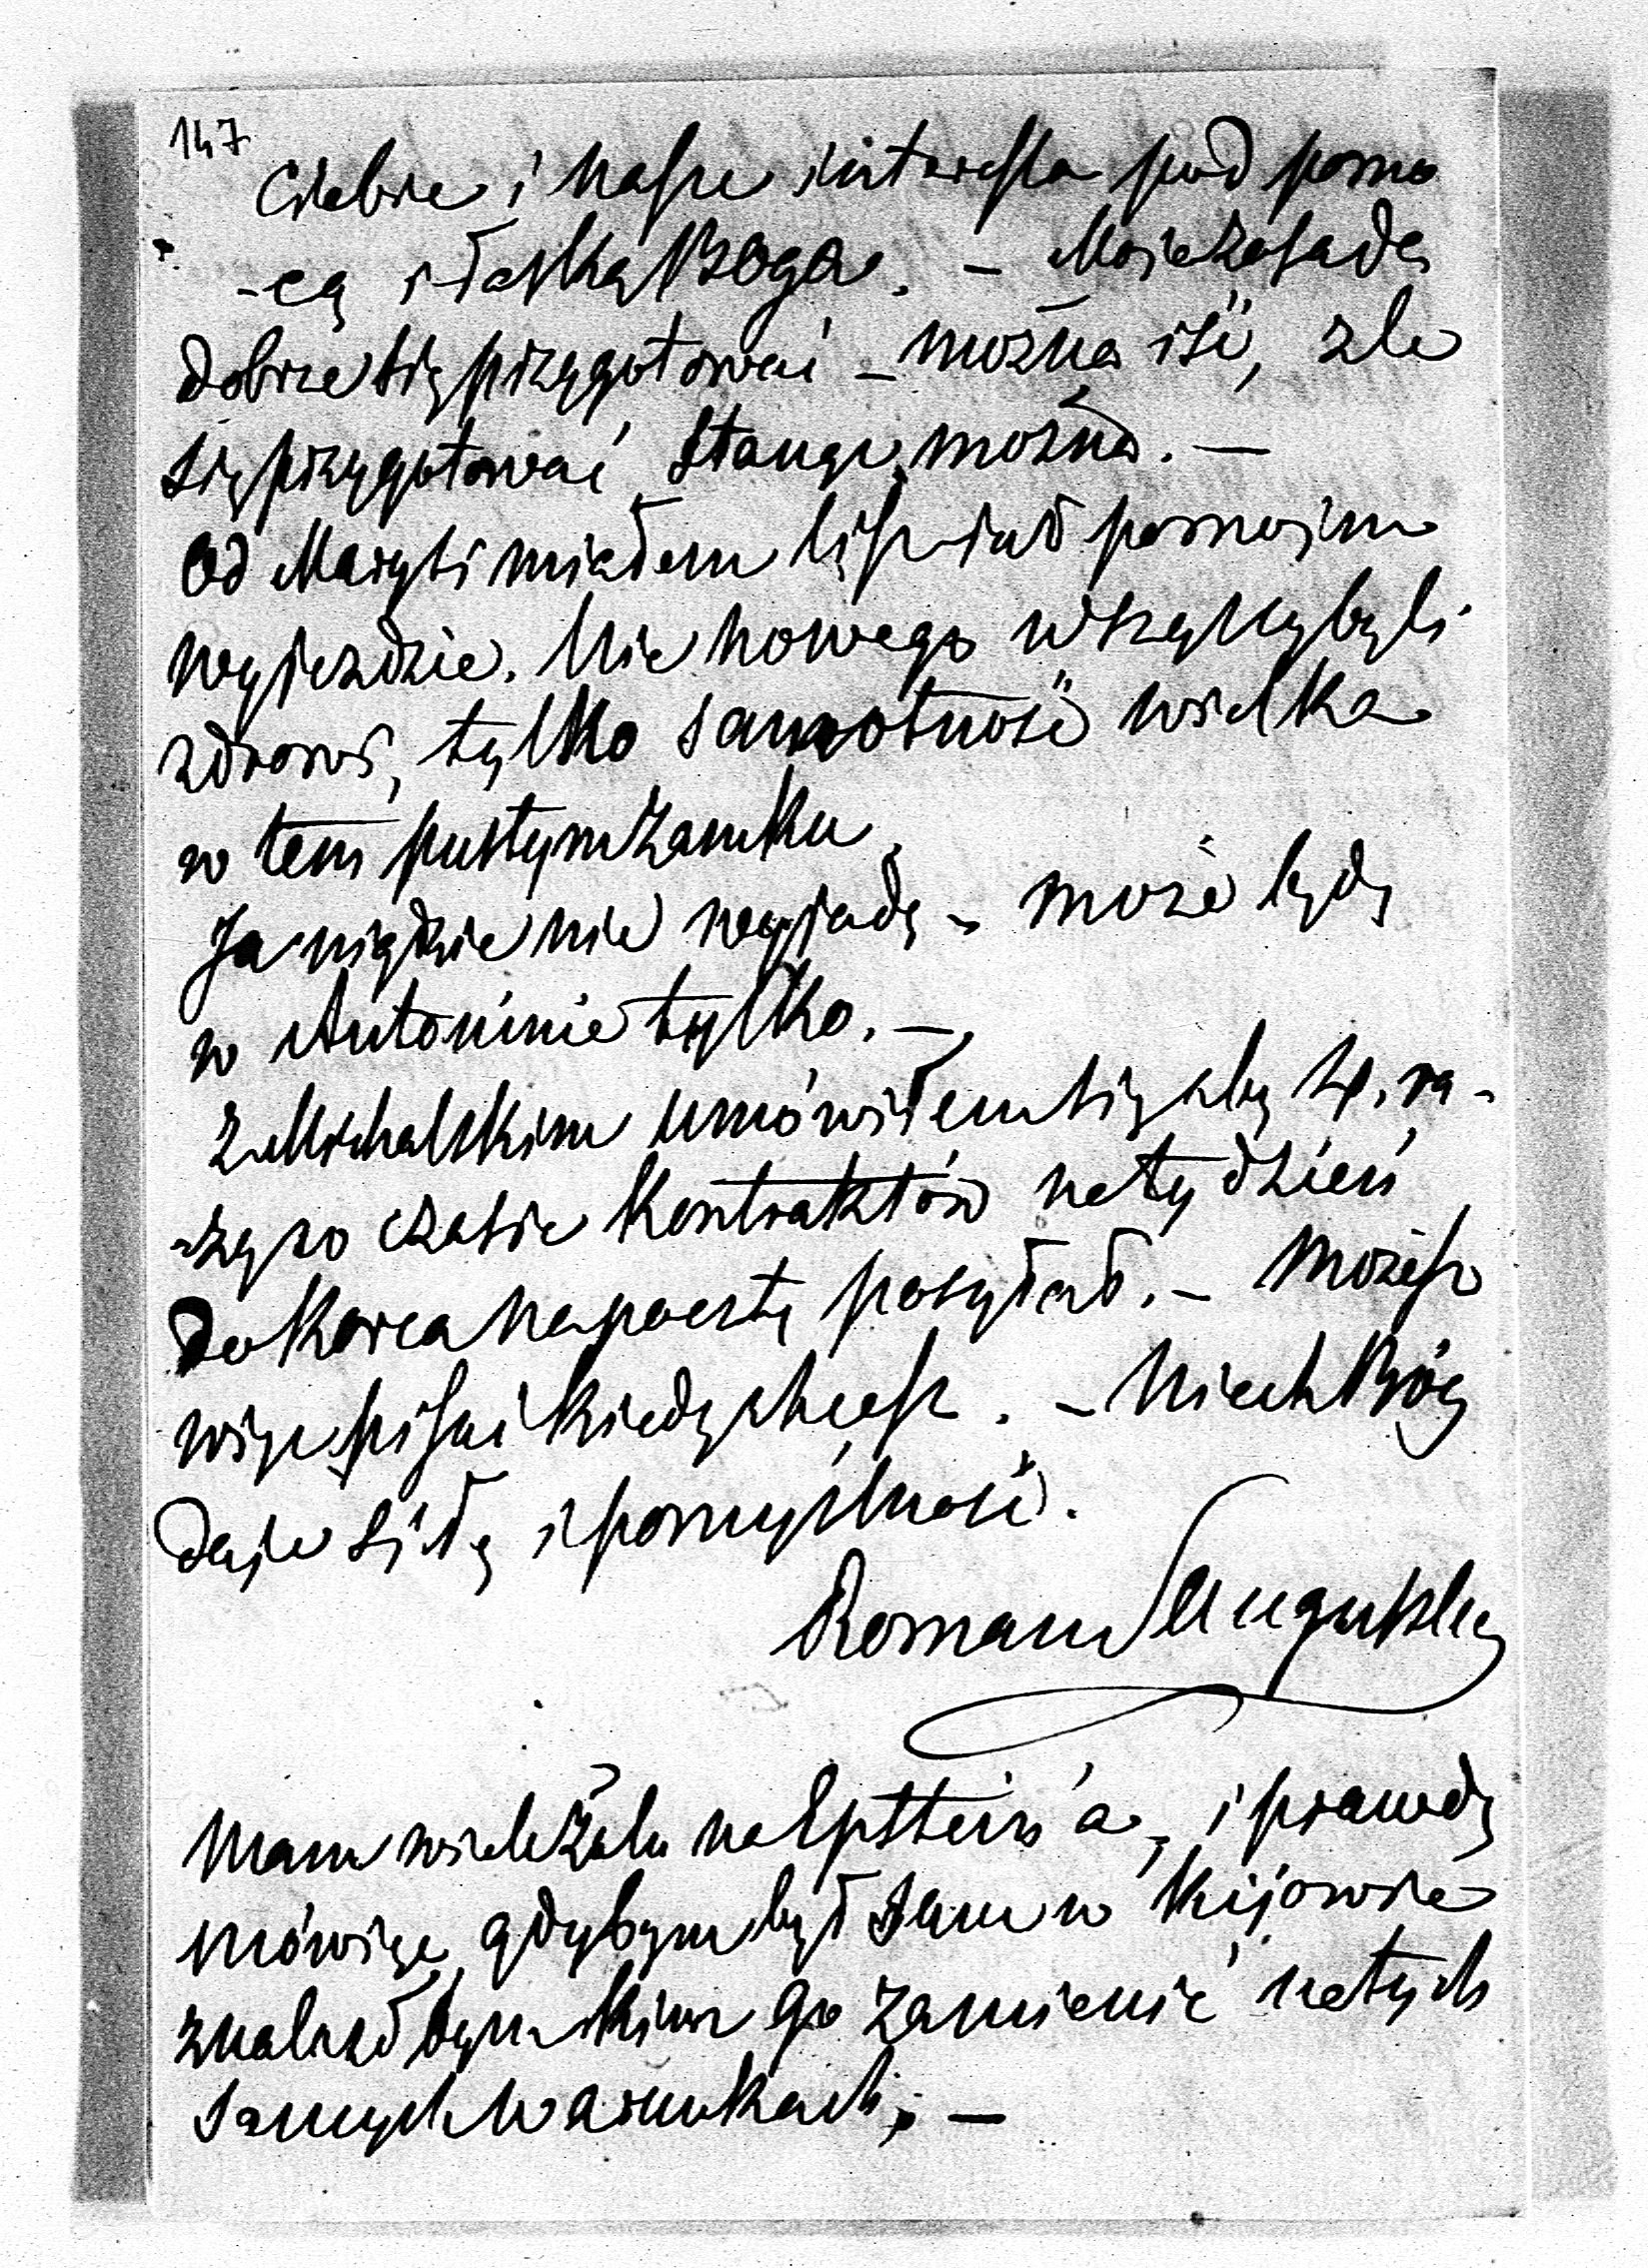 147
Ciebie i nasze interessa pod pomo
-cą i łaską Boga. – Moje zasady
dobrze się przygotować – można iść, źle
się przygotować stanąć można. –
Od Maryli miałem list po moim
wyjeździe. Nic nowego wszyscy byli
zdrowi, tylko samotność wielka
w tem pustym zamku.
Ja nigdzie nie wyjadę – może będę
w Antoninie tylko. –
Z Michalskim umówiłem się aby 4. ra-
-zy w czasie Kontraktów na tydzień
do Korca na pocztę posyłał. – Możesz
więc pisać kiedy chcesz. – Niech Bóg
daje siłę i pomyślność.
Roman Sanguszko
Mam wiele żalu na Epstein'a, i prawdę
mówiąc gdybym był sam w Kijowie
znalazłbym kim go zamienić na tych
samych warunkach. –